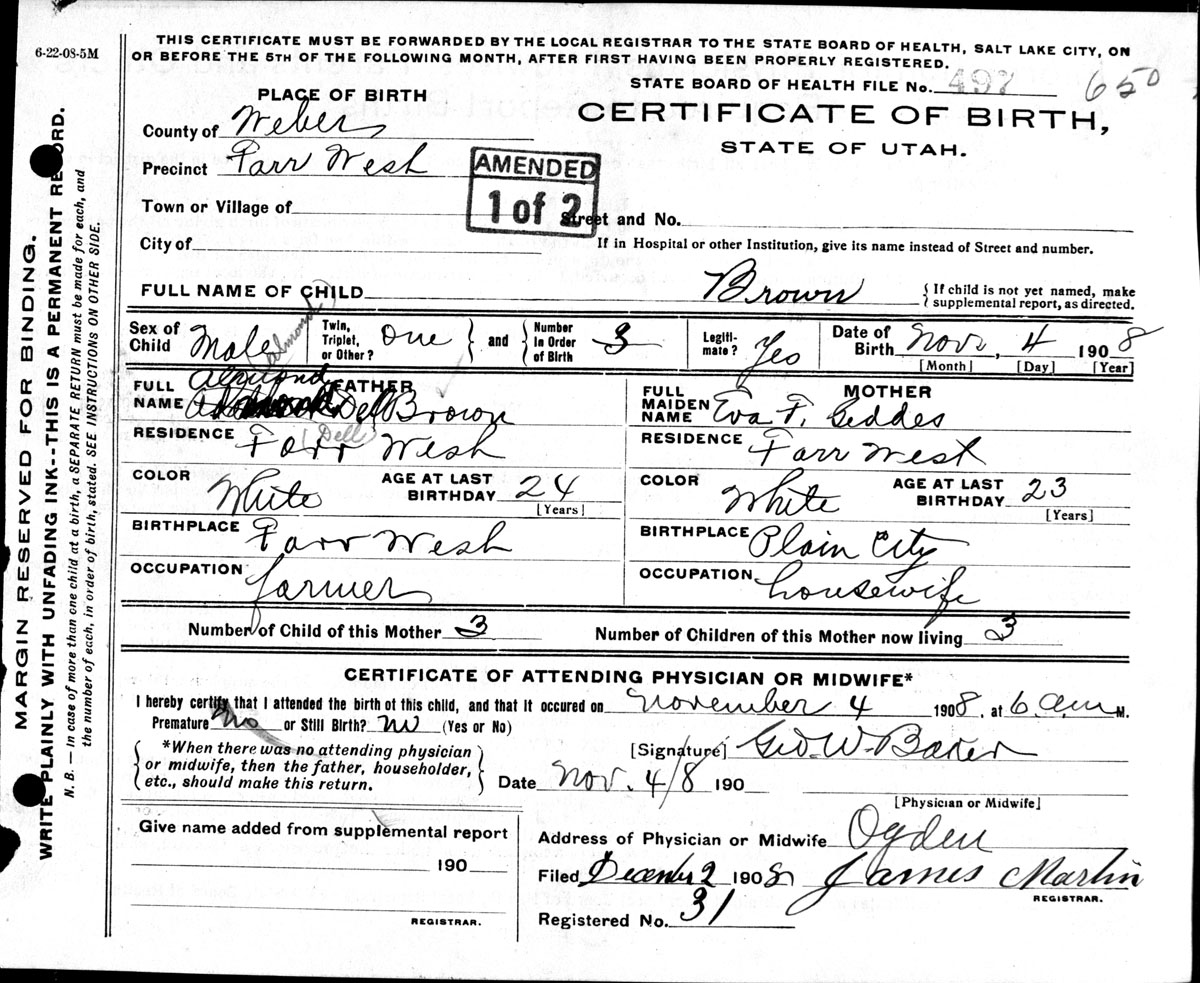 6-22-08-5M
THIS CERTIFICATE MUST BE FORWARDED BY THE LOCAL REGISTRAR TO THE STATE BOARD OF HEALTH, SALT LAKE CITY, ON
OR BEFORE THE 5TH OF THE FOLLOWING MONTH, AFTER FIRST HAVING BEEN PROPERLY REGISTERED.
STATE BOARD OF HEALTH FILE No. 497 650
PLACE OF BIRTH
CERTIFICATE OF BIRTH,
STATE OF UTAH.
County of Weber
Precinct Farr West
AMENDED
1 of 2
Town or Village of
Street and No.
City of
If in Hospital or other Institution, give its name instead of Street and number.
FULL NAME OF CHILD Brown
{ If child is not yet named, make
supplemental report, as directed.
Sex of
Child Male
Twin,
Triplet,
or Other? One } and {
Number
in Order
of Birth 3
Legiti-
mate? Yes
Date of
Birth Nov. 4 1908
[Month] [Day] [Year]
Almond
FULL
NAME
FATHER
Almond
Del Brown
(Dell)
RESIDENCE Farr West
COLOR White
AGE AT LAST
BIRTHDAY 24
[Years]
BIRTHPLACE Farr West
OCCUPATION farmer
FULL
MAIDEN
NAME
MOTHER
Eva F. Geddes
RESIDENCE Farr West
COLOR White
AGE AT LAST
BIRTHDAY 23
[Years]
BIRTHPLACE Plain City
OCCUPATION housewife
Number of Child of this Mother 3
Number of Children of this Mother now living 3
CERTIFICATE OF ATTENDING PHYSICIAN OR MIDWIFE*
I hereby certify that I attended the birth of this child, and that it occured on November 4 1908, at 6 a.m M.
Premature No or Still Birth? no (Yes or No)
*When there was no attending physician
or midwife, then the father, householder,
etc., should make this return.
[Signature] Geo. W. Baker
Date Nov. 4/8 190
[Physician or Midwife]
Give name added from supplemental report
190
REGISTRAR.
Address of Physician or Midwife Ogden
Filed December 2 1908 James Martin
REGISTRAR.
Registered No. 31
MARGIN RESERVED FOR BINDING.
WRITE PLAINLY WITH UNFADING INK--THIS IS A PERMANENT RECORD.
N. B. — In case of more than one child at a birth, a SEPARATE RETURN must be made for each, and
the number of each, in order of birth, stated. SEE INSTRUCTIONS ON OTHER SIDE.